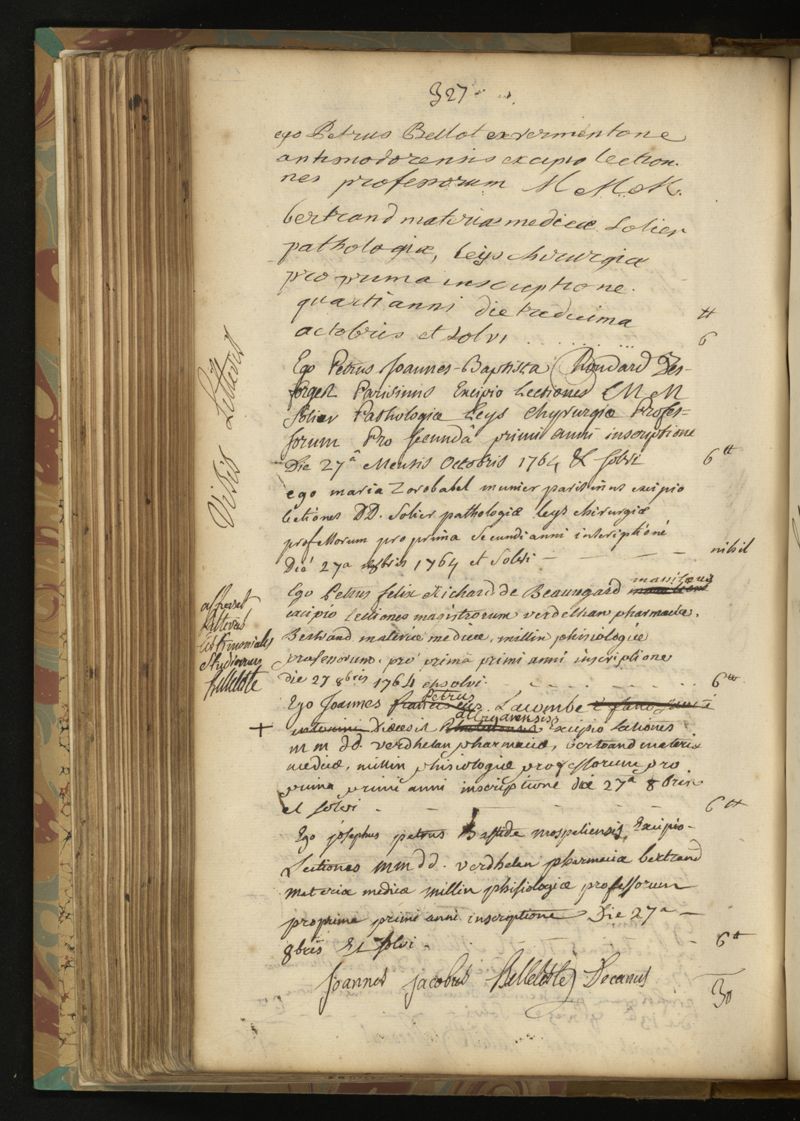 327
ego Petrus Bellot ex vermintone
antissiodorensis excipio lection-
nes professorum M M M.
bertrand materiae medicae Solier
pathologiae, Leys chirurgiae
pro prima inscriptione
quarti anni die tredecima
octobris et solvi ........ 6 tt
Ego Petrus Joannes-Baptista Rondard Des-
forges Parisinus Excipio Lectiones MM
Solier Pathologiae Leys Chyrurgiae Profes-
sorum Pro secundâ primi anni inscriptione
Die 27â Mensis Octobris 1764 & solvi 6 tt
ego maria Zorobabel munier parisinus excipio
lectiones DD. Solier pathologiae Leys chirurgiae
professorum pro prima secundi anni inscriptione
Die 27a 8bris 1764 et solvi — — — nihil
Visis Litteris
Ego Petrus felix Richard de Beauregard
excipio lectiones magistrorum verdelhan pharmaciae,
Bertrand materiae medicae, millin phisiologiae
professorum, pro prima primi anni inscriptione
die 27 8bris 1764 et solvi. ........ 6 tt
Litteras
testimoniales
studiorum
Belleteste
Ego Joannes Petrus Lacombe
+ Diœcesis Excipio lectiones
m m dd. verdhelan pharmaciae, bertrand materiae
medicae, millin phisiologiae professorum pro
prima primi anni inscriptione die 27a 8bris
et solvi - - - - 6 tt
Ego josephus petrus Bastide monspeliensis, Excipio-
Lectiones mm dd. verdhelan pharmaciae bertrand
materiae medicae millin phisiologiae professorum
pro prima primi anni inscriptione Die 27a —
8bris Et solvi - - - 6 tt
Joannes jacobus Belleteste Decanus
30